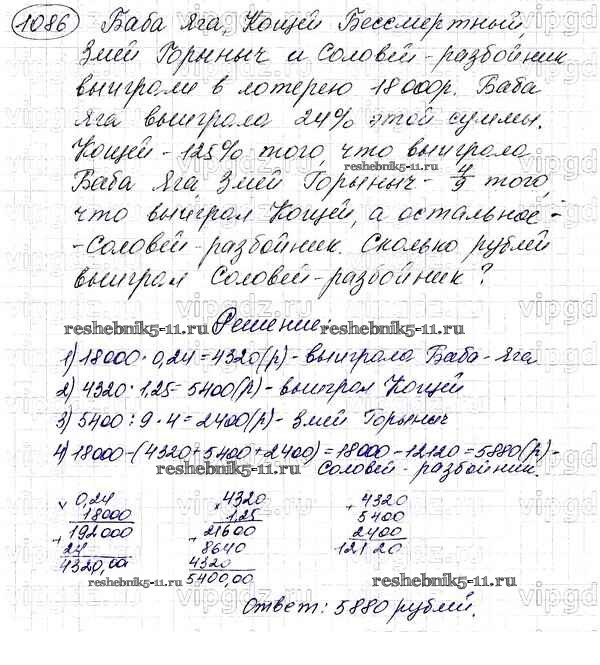 1086 Баба Яга, Кощей Бессмертный,
Змей Горыныч и Соловей-разбойник
выиграли в лотерею 18000р. Баба
Яга выиграла 24% этой суммы.
Кощей - 125% того, что выиграла
reshebnik5-11.ru
Баба Яга Змей Горыныч - 4/9 того,
что выиграл Кощей, а остальное -
-Соловей-разбойник. Сколько рублей
выиграл Соловей-разбойник?
Решение:
reshebnik5-11.ru
reshebnik5-11.ru
1) 18000 · 0,24 = 4320(р) - выиграла Баба-Яга
2) 4320 · 1,25 = 5400(р) - выиграл Кощей
3) 5400 : 9 · 4 = 2400(р) - Змей Горыныч
4) 18000 - (4320 + 5400 + 2400) = 18000 - 12120 = 5880(р) -
Соловей-разбойник.
reshebnik5-11.ru
× 0,24 × 4320 + 4320
18000 1,25 5400
+ 192000 + 21600 2400
24 8640 12120
4320,00 4320
5400,00
reshebnik5-11.ru
reshebnik5-11.ru
Ответ: 5880 рублей.